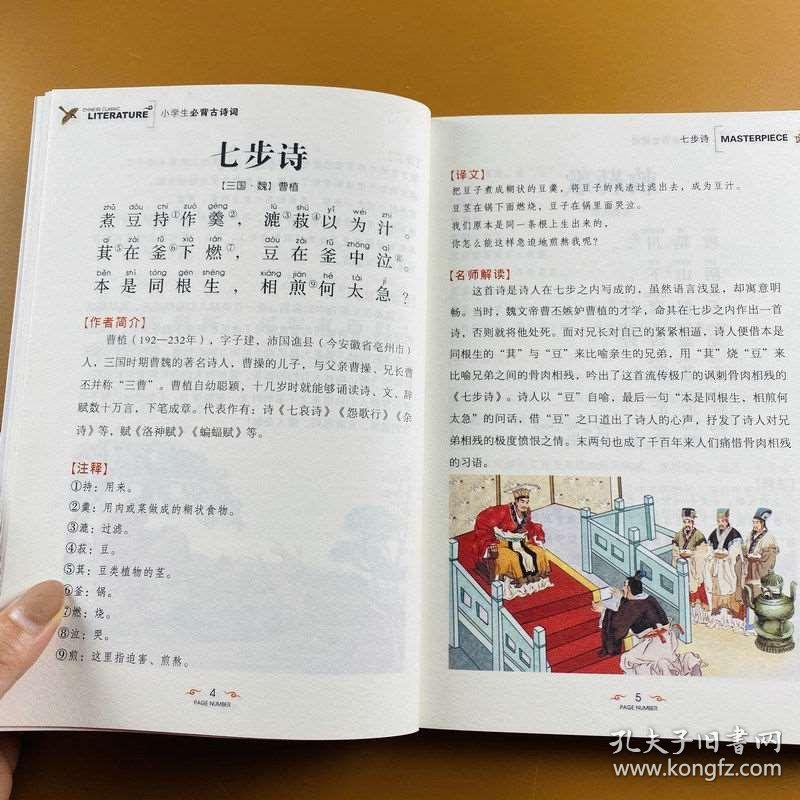 CHINESE CLASSIC
LITERATURE 小学生必背古诗词
七步诗
【三国·魏】曹植
zhǔ dòu chí zuò gēng lù shū yǐ wéi zhī
煮豆持①作羹②，漉③菽④以为汁。
qí zài fǔ xià rán dòu zài fǔ zhōng qì
萁⑤在釜⑥下燃⑦，豆在釜中泣⑧。
běn shì tóng gēn shēng xiāng jiān hé tài jí
本是同根生，相煎⑨何太急？
【作者简介】
曹植（192—232年），字子建，沛国谯县（今安徽省亳州市）
人，三国时期曹魏的著名诗人，曹操的儿子，与父亲曹操、兄长曹
丕并称“三曹”。曹植自幼聪颖，十几岁时就能够诵读诗、文、辞
赋数十万言，下笔成章。代表作有：诗《七哀诗》《怨歌行》《杂
诗》等，赋《洛神赋》《蝙蝠赋》等。
【注释】
①持：用来。
②羹：用肉或菜做成的糊状食物。
③漉：过滤。
④菽：豆。
⑤萁：豆类植物的茎。
⑥釜：锅。
⑦燃：烧。
⑧泣：哭。
⑨煎：这里指迫害、煎熬。
4
PAGE NUMBER
七步诗 MASTERPIECE
【译文】
把豆子煮成糊状的豆羹，将豆子的残渣过滤出去，成为豆汁。
豆茎在锅下面燃烧，豆子在锅里面哭泣。
我们原本是同一条根上生出来的，
你怎么能这样急迫地煎熬我呢？
【名师解读】
这首诗是诗人在七步之内写成的，虽然语言浅显，却寓意明
畅。当时，魏文帝曹丕嫉妒曹植的才学，命其在七步之内作出一首
诗，否则就将他处死。面对兄长对自己的紧紧相逼，诗人便借本是
同根生的“萁”与“豆”来比喻亲生的兄弟，用“萁”烧“豆”来
比喻兄弟之间的骨肉相残，吟出了这首流传极广的讽刺骨肉相残的
《七步诗》。诗人以“豆”自喻，最后一句“本是同根生，相煎何
太急”的问话，借“豆”之口道出了诗人的心声，抒发了诗人对兄
弟相残的极度愤恨之情。末两句也成了千百年来人们痛惜骨肉相残
的习语。
5
PAGE NUMBER
孔夫子旧书网
www.kongfz.com